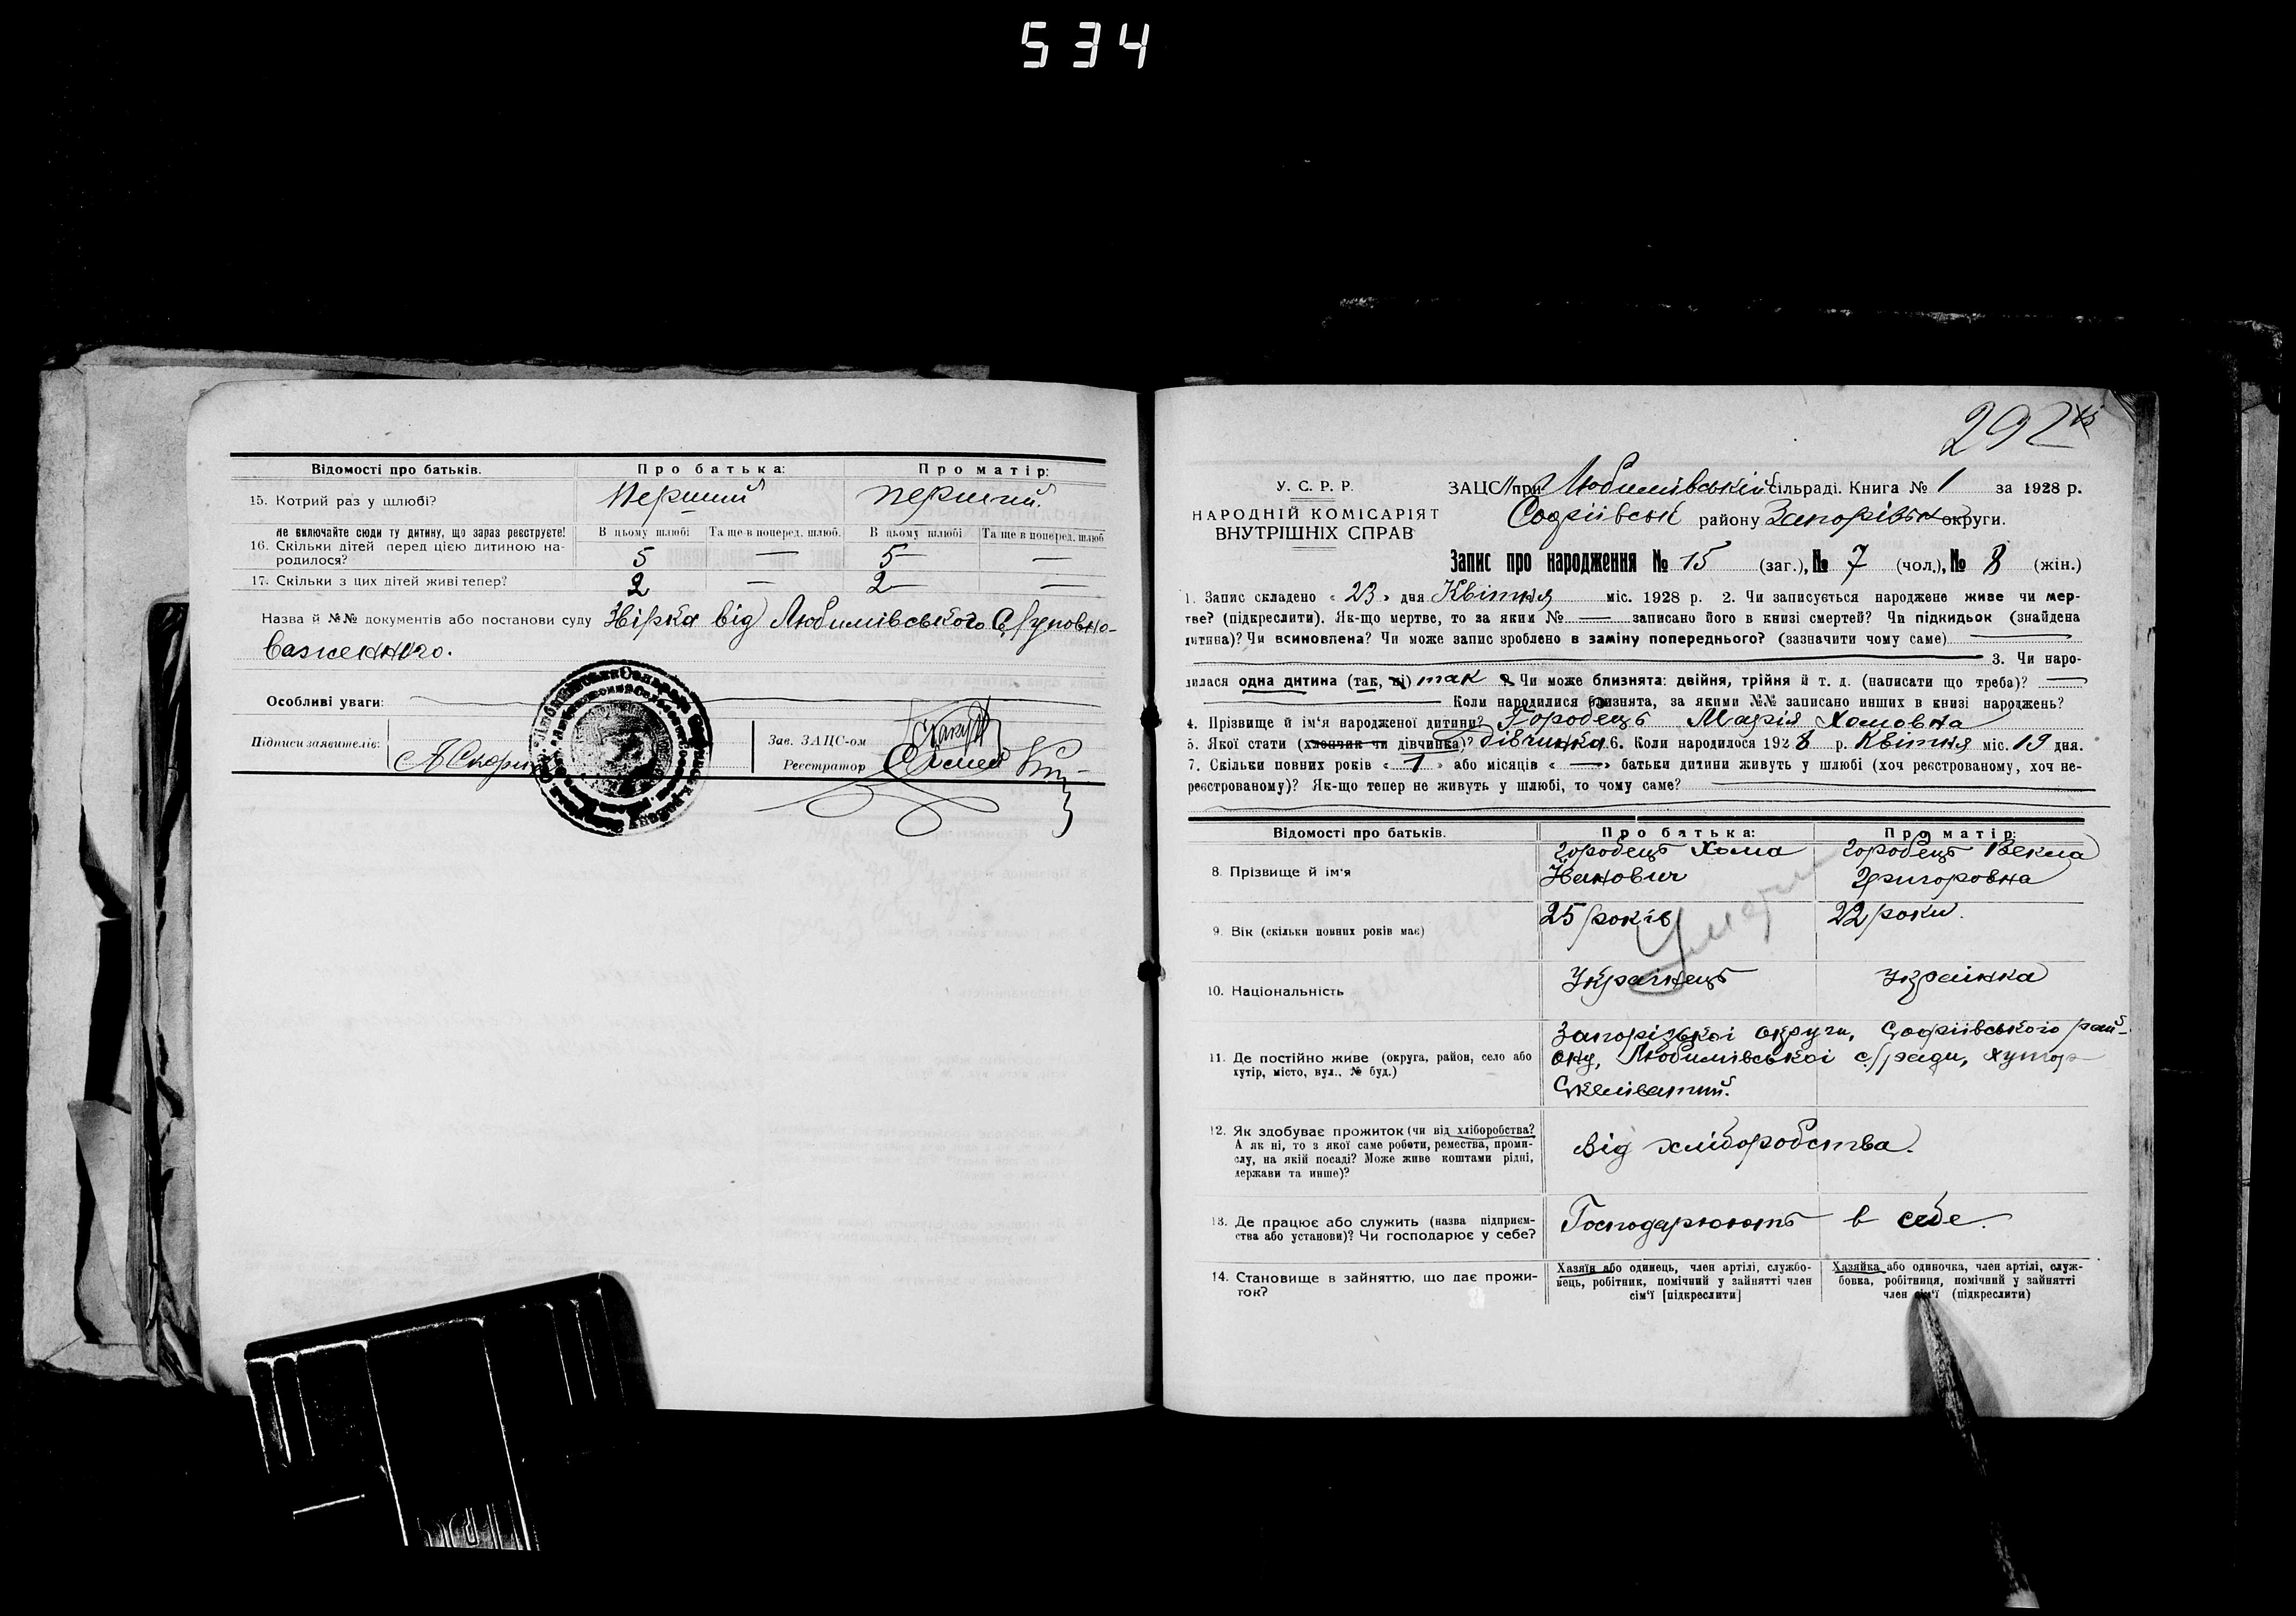 534
Відомості про батьків. Про батька: Про матір:
15. Котрий раз у шлюбі? Перший перший.
Не включайте сюди ту дитину, що зараз реєструєте! В цьому шлюбі Та ще в поперед. шлюб. В цьому шлюбі Та ще в поперед. шлюб
16. Скільки дітей перед цією дитиною на-
родилося? 5 — 5 —
17. Скільки з цих дітей живі тепер? 2 — 2 —
Назва й №№ документів або постанови суду Звірка від Любимівського С/уповно-
важенного.
Особливі уваги:
Підписи заявителів:
Зав. ЗАЦС-ом
Реєстратор
292
У. С. Р. Р.
НАРОДНІЙ КОМІСАРІЯТ
ВНУТРІШНІХ СПРАВ
ЗАЦС при Любимівській сільраді. Книга № 1 за 1928 р.
Софіївськ району Запорізьк округи.
Запис про народження № 15 (заг.), № 7 (чол.), № 8 (жін.)
1. Запис складено « 23 » дня Квітня міс. 1928 р. 2. Чи записується народжене живе чи мер-
тве? (підкреслити). Як-що мертве, то за яким № — записано його в книзі смертей? Чи підкидьок (знайдена
дитина)? Чи всиновлена? Чи може запис зроблено в заміну попереднього? (зазначити чому саме)
3. Чи наро-
дилася одна дитина (так, ні) так Чи може близнята: двійня, трійня й т. д. (написати що треба)? —
Коли народилися близнята, за якими №№ записано инших в книзі народжень?
4. Прізвище й ім'я народженої дитини? Городець Марія Хомовна
5. Якої стати (хлопчик чи дівчинка)? дівчинка 6. Коли народилося 1928 р. Квітня міс. 19 дня.
7. Скільки повних років « 1 » або місяців « — » батьки дитини живуть у шлюбі (хоч реєстрованому, хоч не-
реєстрованому)? Як-що тепер не живуть у шлюбі, то чому саме?
Відомості про батьків. Про батька: Про матір:
8. Прізвище й ім'я Городець Хома Іванович Городець Векла Григоровна
9. Вік (скільки повних років має) 25 років 22 роки.
Умерли
10. Національність Українець Українка
11. Де постійно живе (округа, район, село або
хутір, місто, вул., № буд.)
Запорізької округи, Софіївського рай-
ону, Любимівської с/ради, хутор
Скелюватий.
12. Як здобуває прожиток (чи від хліборобства?
А як ні, то з якої саме роботи, ремества, проми-
слу, на якій посаді? Може живе коштами рідні,
держави та инше)?
Від хліборобства.
13. Де працює або служить (назва підприєм-
ства або установи)? Чи господарює у себе?
Господарюють в себе.
14. Становище в зайняттю, що дає прожи-
ток?
Хазяїн або одинець, член артілі, службо-
вець, робітник, помічний у зайнятті член
сім'ї [підкреслити]
Хазяйка або одиночка, член артілі, служ-
бовка, робітниця, помічний у зайнятті
член сім'ї (підкреслити)